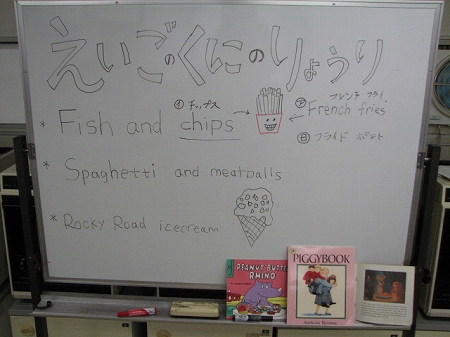 えいごのくにのりょうり
イ チップス
ア フレンチ フライ
* Fish and chips → ← French fries
日 フライド ポテト
* Spaghetti and meatballs
* Rocky Road icecream
PEANUT BUTTER RHINO
PIGGYBOOK
Anthony Browne